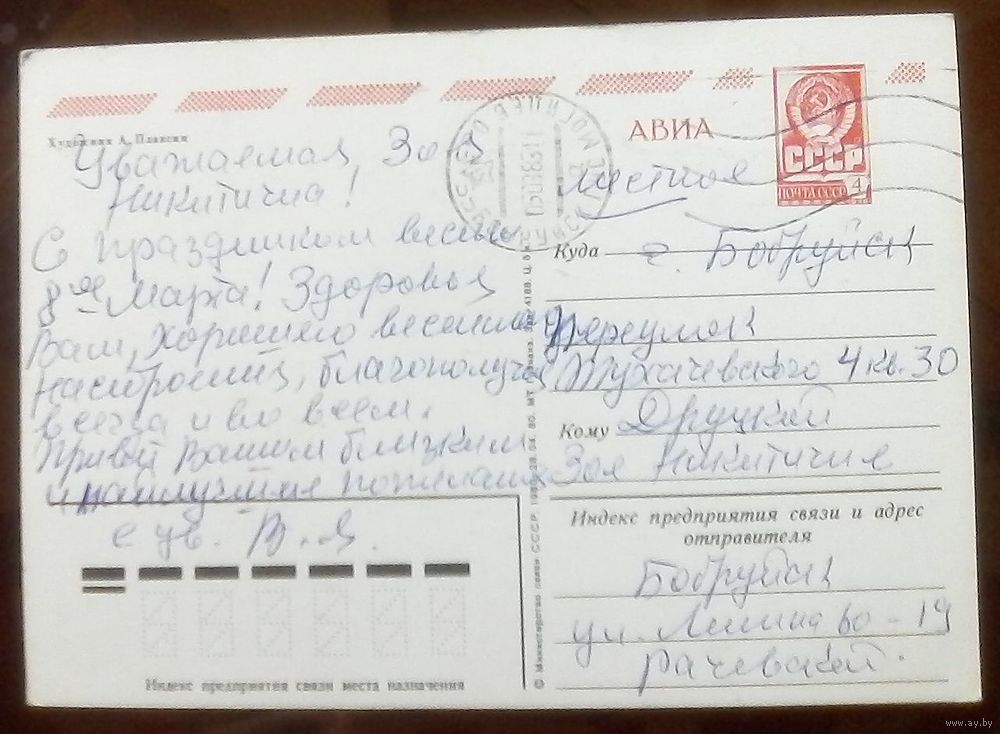 Художник А. Плаксин
АВИА
СССР
ПОЧТА СССР 4
местное
Уважаемая Зоя
Никитична!
С праздником весны
8ое Марта! Здоровья
Вам, хорошего весеннего
настроения, благополучия
всегда и во всем.
Привет Вашим близким
и наилучшие пожелания
с ув. В. Я.
Куда г. Бобруйск
переулок
Тухачевского 4 кв. 30
Кому Друцкой
Зое Никитичне
Индекс предприятия связи и адрес
отправителя
Бобруйск
ул. Ленина 60 - 19
Рачевской.
Индекс предприятия связи места назначения
© Министерство связи СССР.
www.ay.by